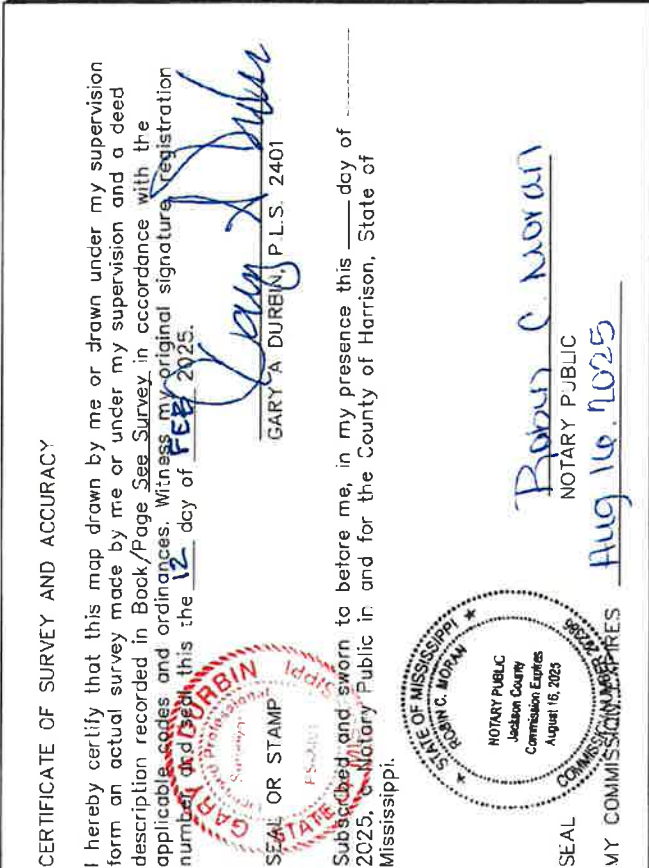 CERTIFICATE OF SURVEY AND ACCURACY
I hereby certify that this map drawn by me or drawn under my supervision
form an actual survey made by me or under my supervision and a deed
description recorded in Book/Page See Survey in accordance with the
applicable codes and ordinances. Witness my original signature, registration
number and seal this the 12 day of FEB 2025.
GARY A DURBIN, P.L.S. 2401
SEAL OR STAMP
GARY DURBIN
Professional
Surveyor
STATE
SIPPI
Subscribed and sworn to before me, in my presence this ____ day of
2025, a Notary Public in and for the County of Harrison, State of
Mississippi.
Robin C. Moran
NOTARY PUBLIC
STATE OF MISSISSIPPI
ROBIN C. MORAN
NOTARY PUBLIC
Jackson County
Commission Expires
August 16, 2025
COMMISSION NUMBER
SEAL
MY COMMISSION EXPIRES Aug 16, 2025